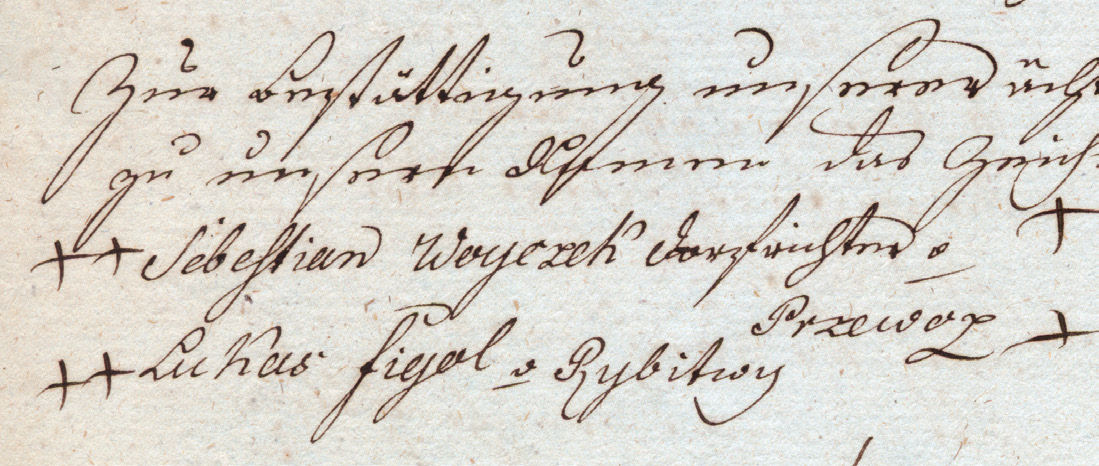 Zur Bestättigung unserer ächt
zu unsern Nahmen das Zeich
++ Sebestian Woyczek Dorfrichter v +
Przewoz +
++ Lukas Figol v Rybitwy